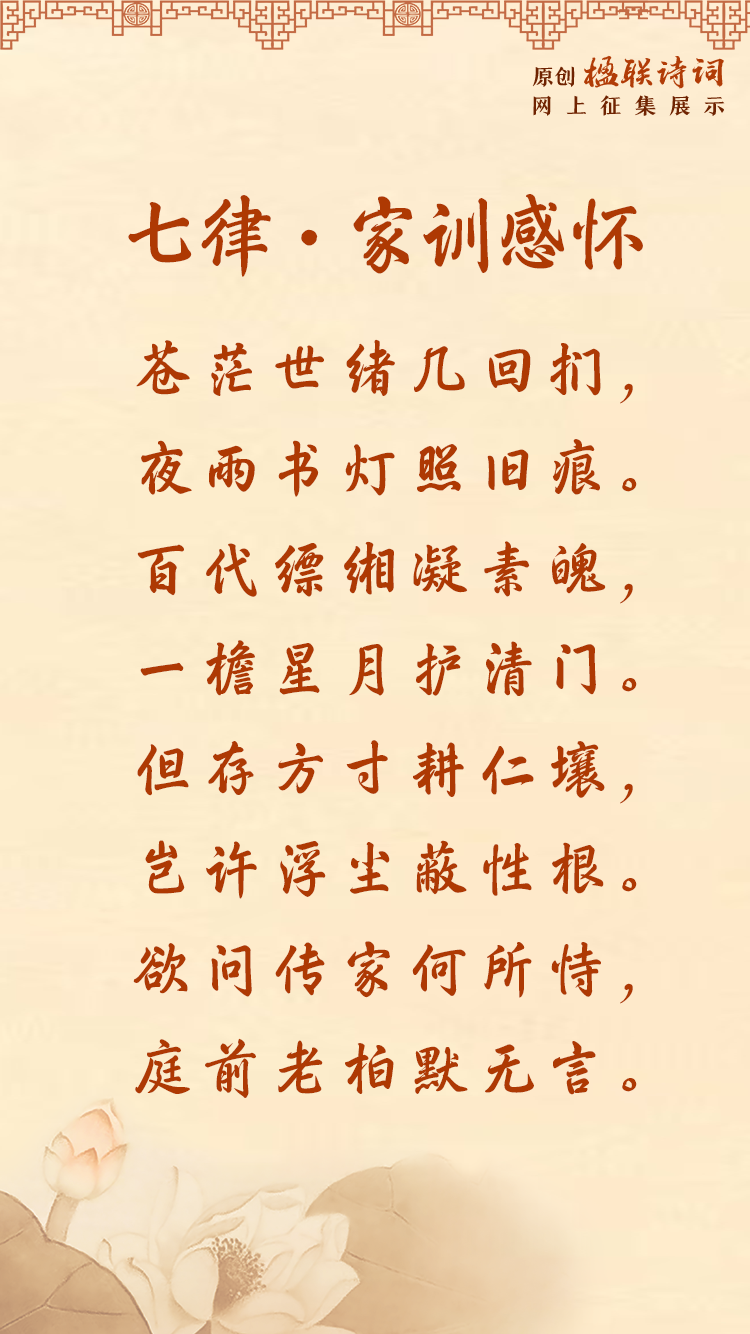 原创 楹联诗词
网上征集展示
七律·家训感怀
苍茫世绪几回扪，
夜雨书灯照旧痕。
百代缥缃凝素魄，
一檐星月护清门。
但存方寸耕仁壤，
岂许浮尘蔽性根。
欲问传家何所恃，
庭前老柏默无言。